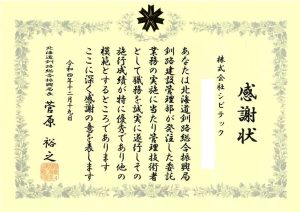 感謝状
株式会社シビテック
あなたは北海道釧路総合振興局
釧路建設管理部が発注した委託
業務の実施に当たり管理技術者
として職務を誠実に遂行しその
施行成績が特に優秀であり他の
模範とするところであります
ここに深く感謝の意を表します
令和四年十二月十九日
北海道釧路総合振興局長 菅原裕之